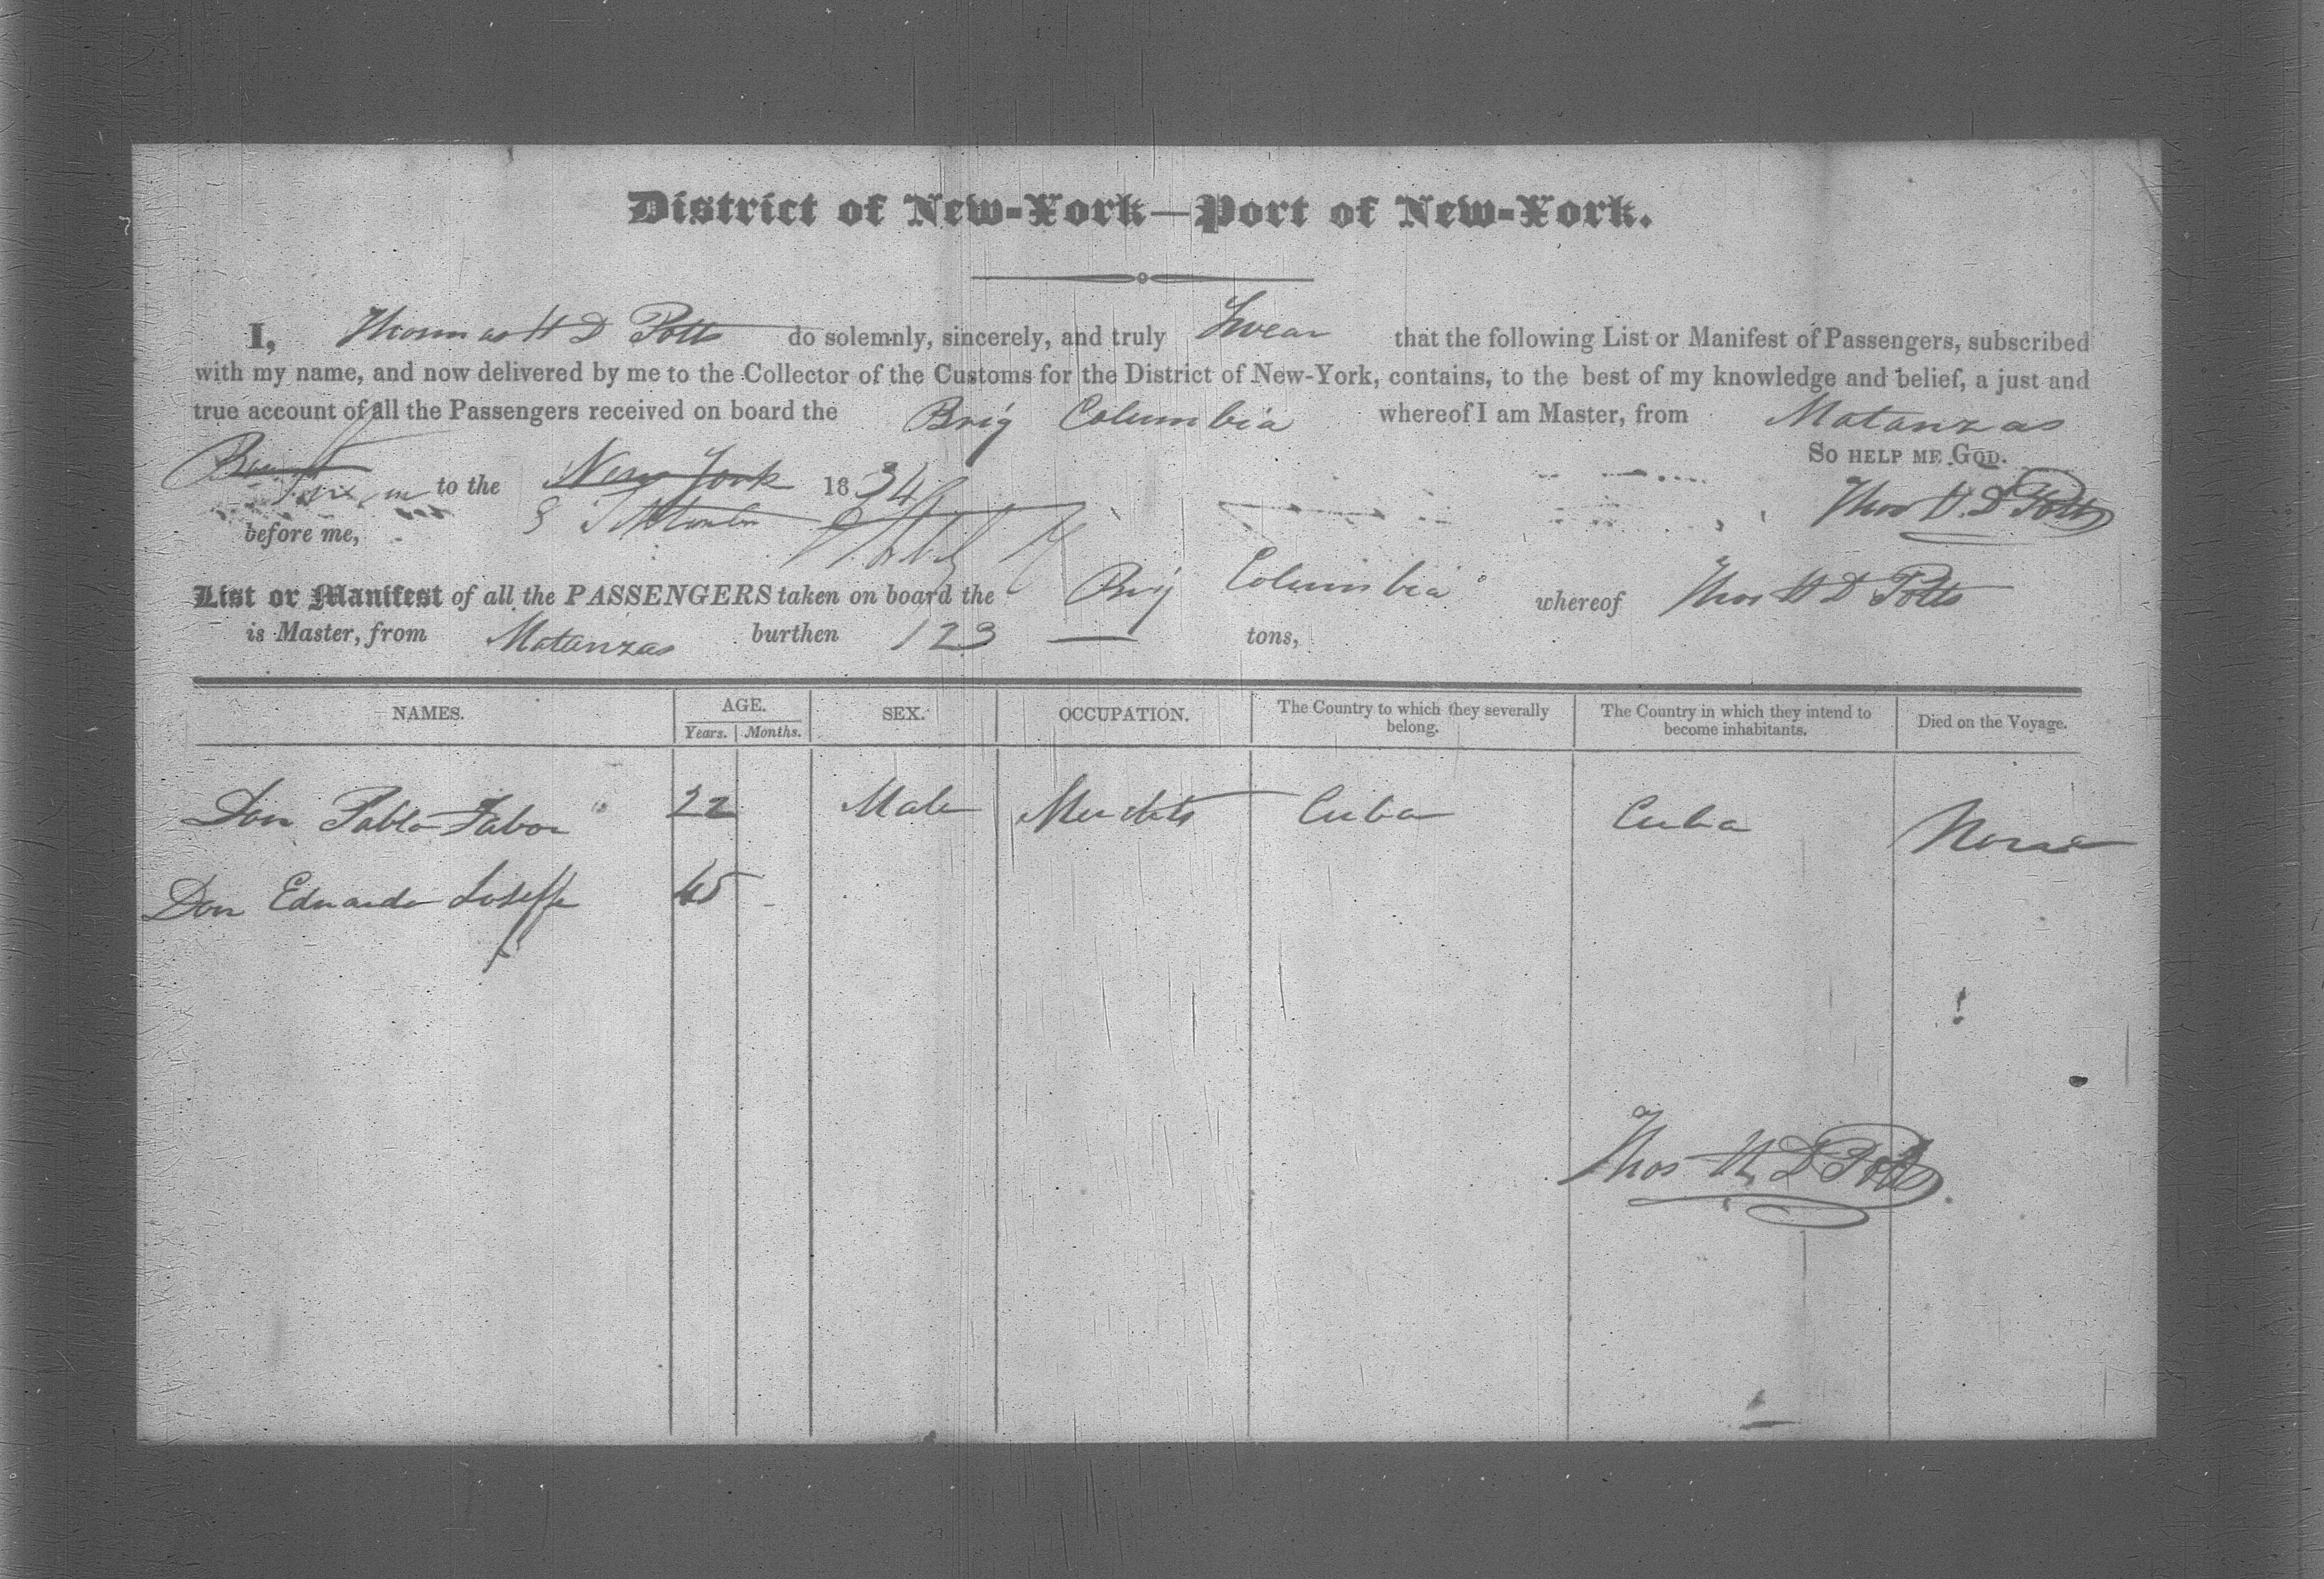 District of New-York—Port of New-York.
I, Thomas H D Potts do solemnly, sincerely, and truly Swear that the following List or Manifest of Passengers, subscribed
with my name, and now delivered by me to the Collector of the Customs for the District of New-York, contains, to the best of my knowledge and belief, a just and
true account of all the Passengers received on board the Brig Columbia whereof I am Master, from Matanzas
So help me God.
to the New York 1834
Thos H. D Potts
before me,
List or Manifest of all the PASSENGERS taken on board the Brig Columbia whereof Thos H D Potts
is Master, from Matanzas burthen 123 tons,
NAMES. AGE. Years. Months. SEX. OCCUPATION. The Country to which they severally belong. The Country in which they intend to become inhabitants. Died on the Voyage.
Don Pablo Fabor 22 Male Cuba Cuba None
Don Eduardo 45
Thos H. D Potts